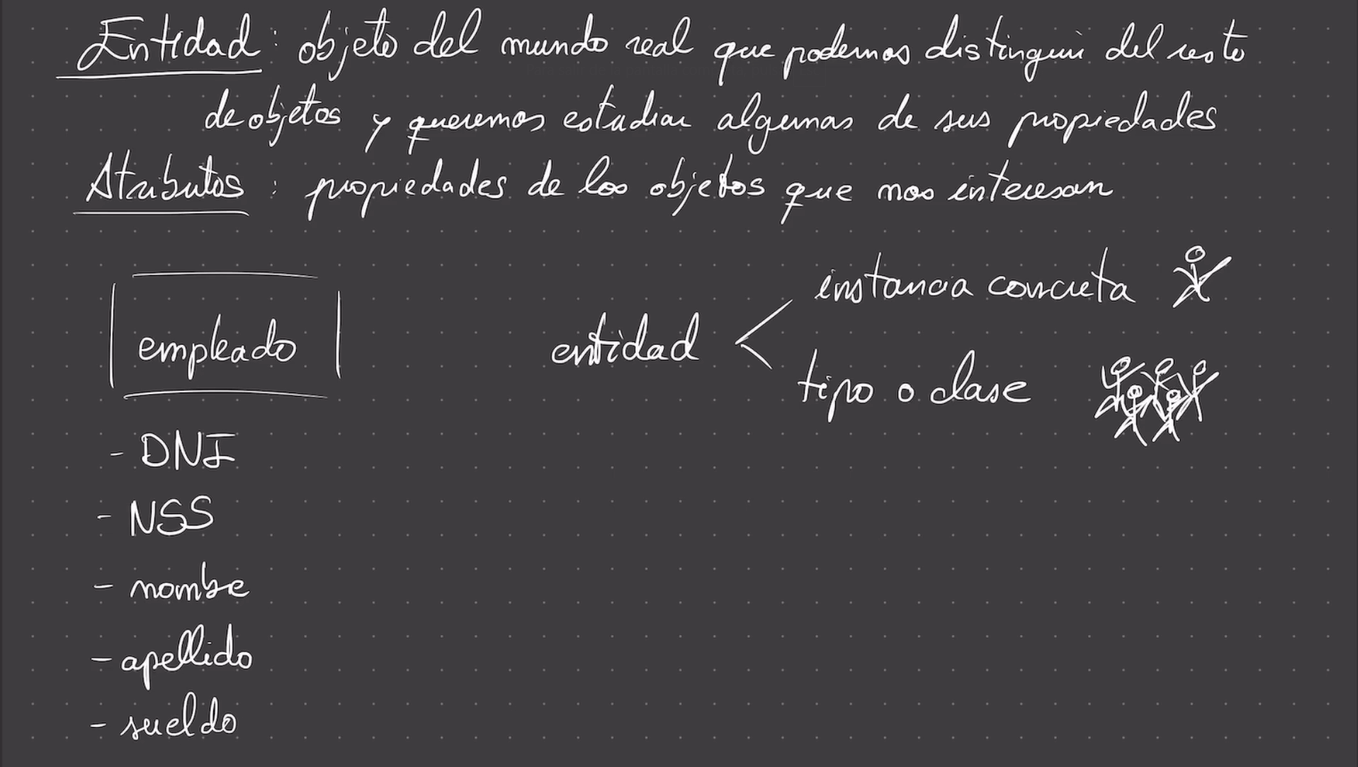 Entidad: objeto del mundo real que podemos distinguir del resto
de objetos y queremos estudiar algunas de sus propiedades
Atributos: propiedades de los objetos que nos interesan
empleado
- DNI
- NSS
- nombre
- apellido
- sueldo
entidad <
instancia concreta
tipo o clase